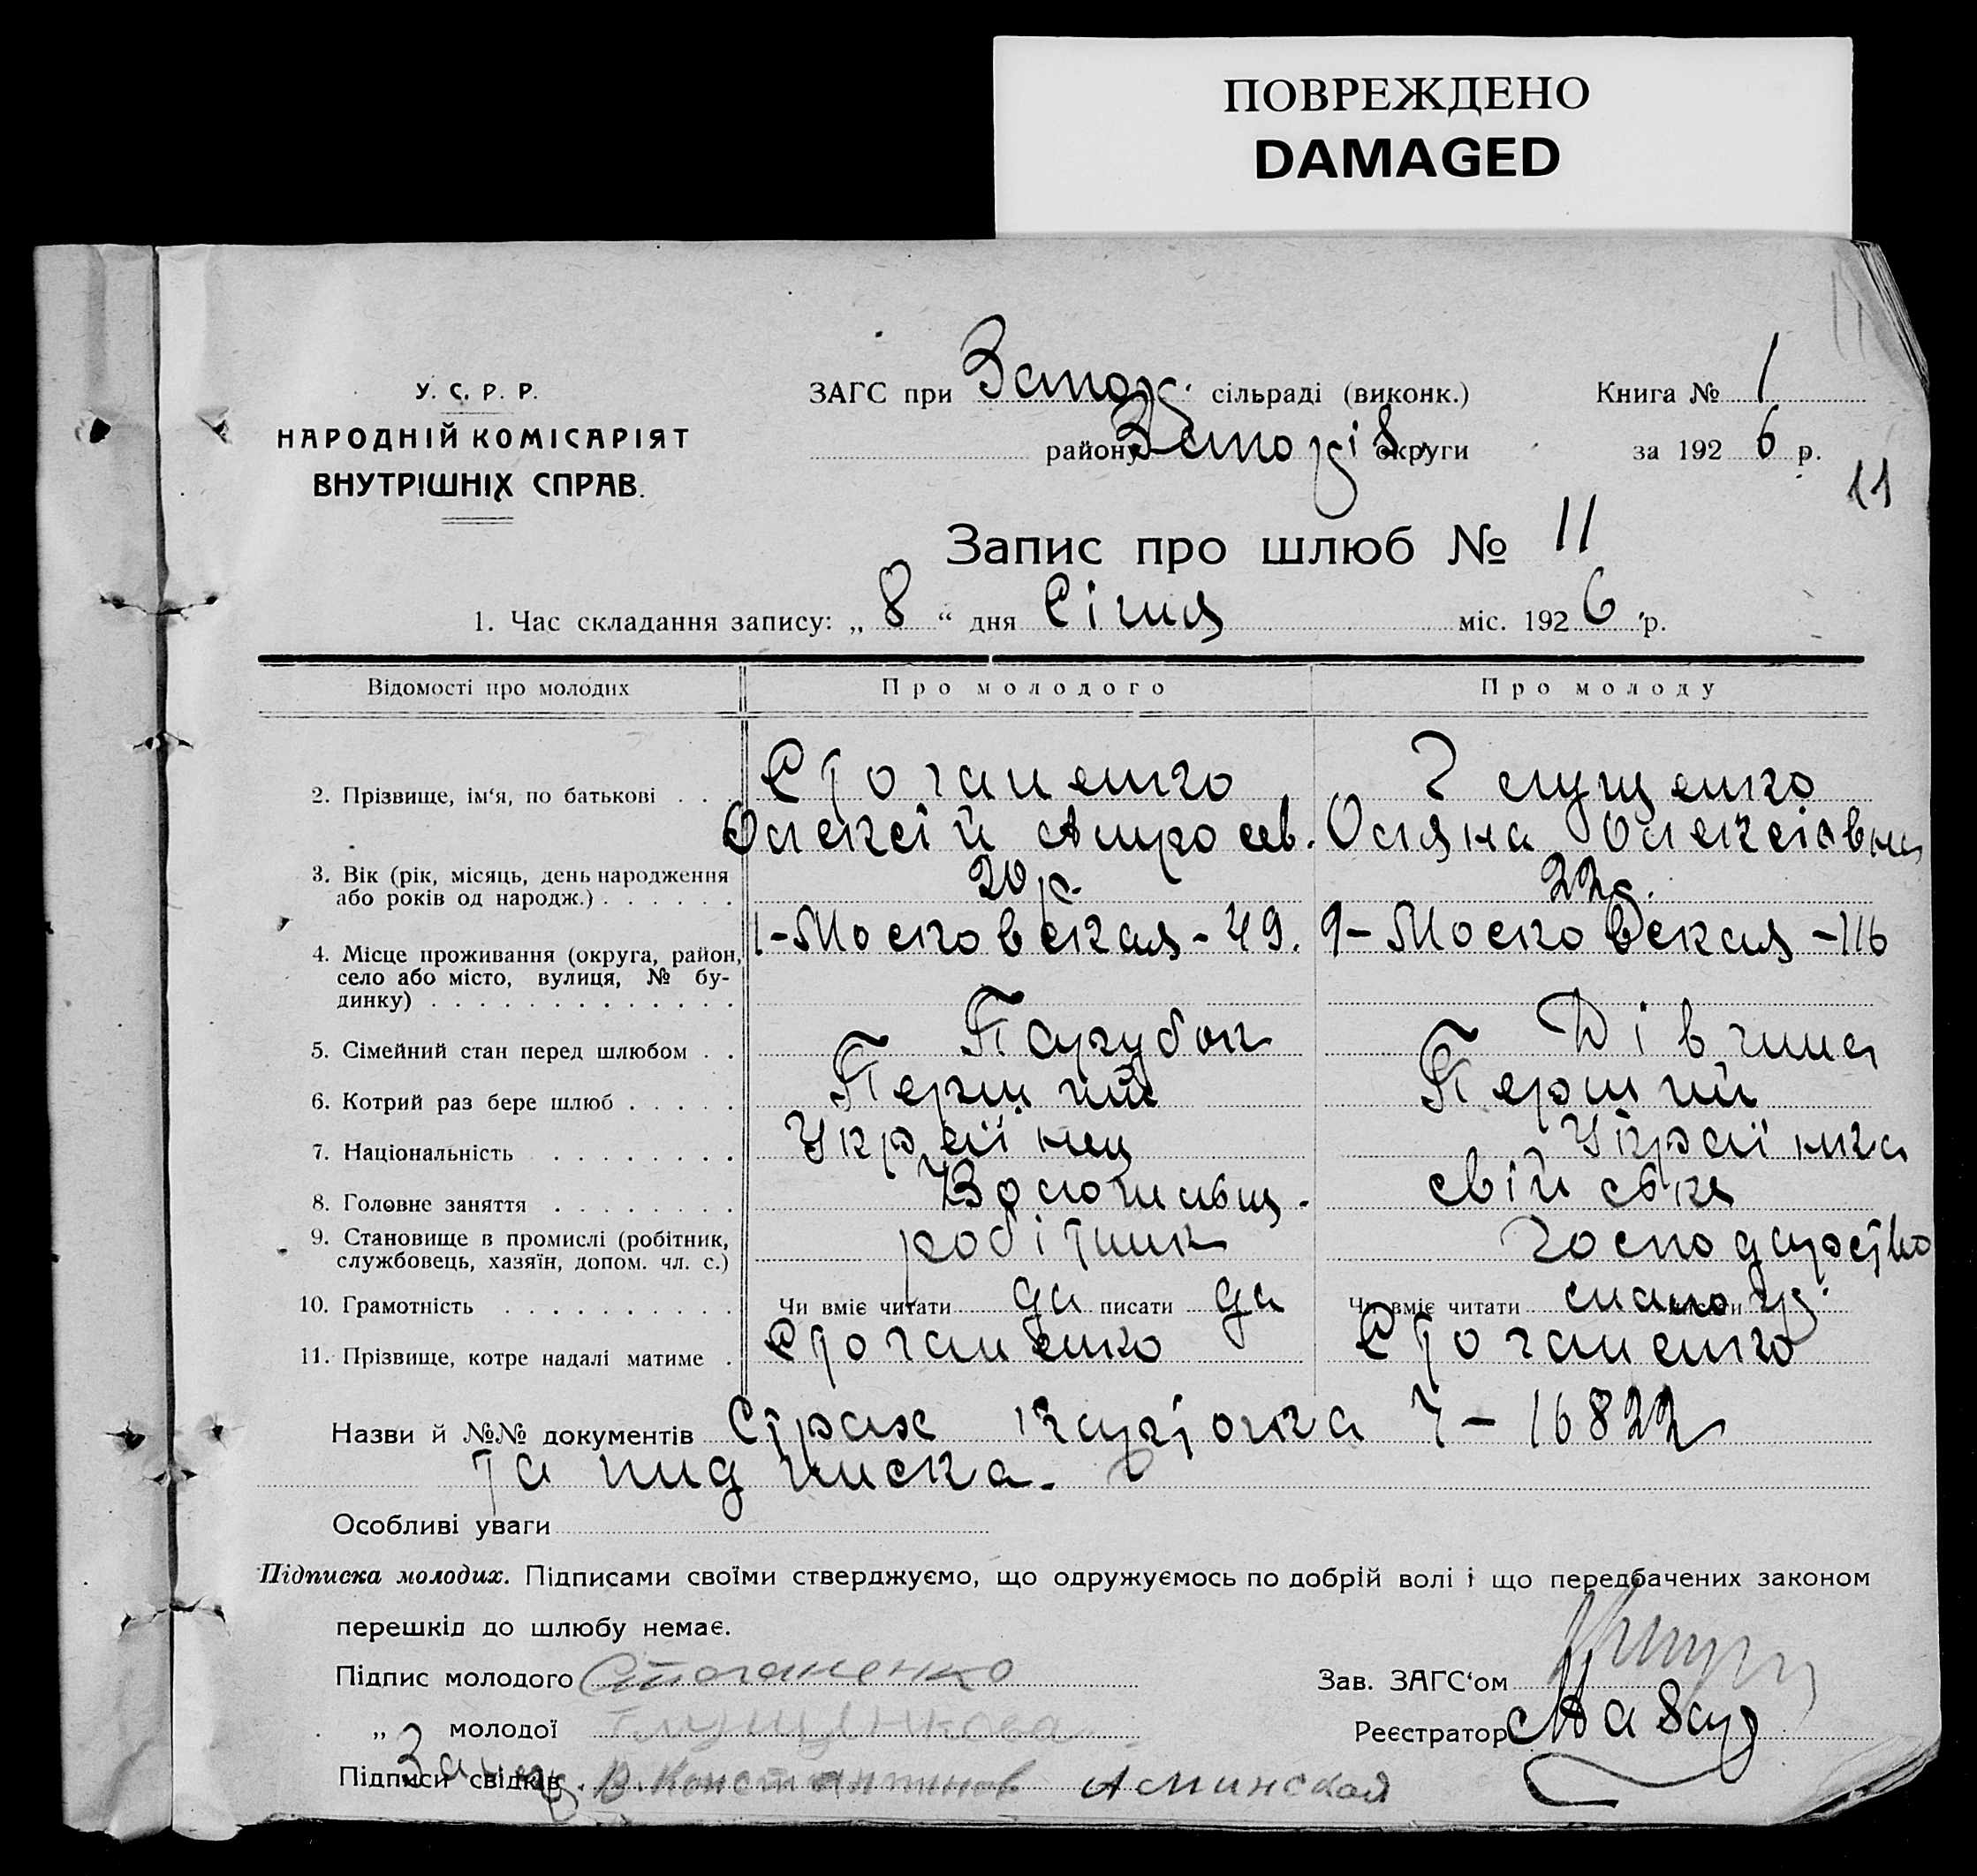 ПОВРЕЖДЕНО
DAMAGED
У. С. Р. Р.
НАРОДНІЙ КОМІСАРІЯТ
ВНУТРІШНІХ СПРАВ.
ЗАГС при Запож. сільраді (виконк.)
району Запоріз. округи
Книга № 1
за 1926 р.
11
Запис про шлюб № 11
1. Час складання запису: „ 8 “ дня Січня міс. 1926 р.
Відомості про молодих Про молодого Про молоду
2. Прізвище, ім‘я, по батькові . . . Строганенко Глущенко
Олексій Олена Олексіївна
3. Вік (рік, місяць, день народження
або років од народж.) . . . . . . 20 р. 22 р.
4. Місце проживання (округа, район,
село або місто, вулиця, № бу-
динку) . . . . . . . . . . . . . 1-Московская-49. 9-Московская-116
5. Сімейний стан перед шлюбом . . Парубок Дівчина
6. Котрий раз бере шлюб . . . . . Перший Перший
7. Національність . . . . . . . . Українец Українка
8. Головне заняття . . . . . . . . свійське
9. Становище в промислі (робітник,
службовець, хазяїн, допом. чл. с.) робітник господарство
10. Грамотність . . . . . . . . . . Чи вміє читати да писати да Чи вміє читати
11. Прізвище, котре надалі матиме . Стоганенко Стоганенко
Назви й №№ документів Страх карточка 7-16822
та пидписка.
Особливі уваги
Підписка молодих. Підписами своїми стверджуємо, що одружуємось по добрій волі і що передбачених законом
перешкід до шлюбу немає.
Підпис молодого Стоганенко
Зав. ЗАГС‘ом
„ молодої Глущенкова
Реєстратор
Підписи свідків В. Константинов Аминская